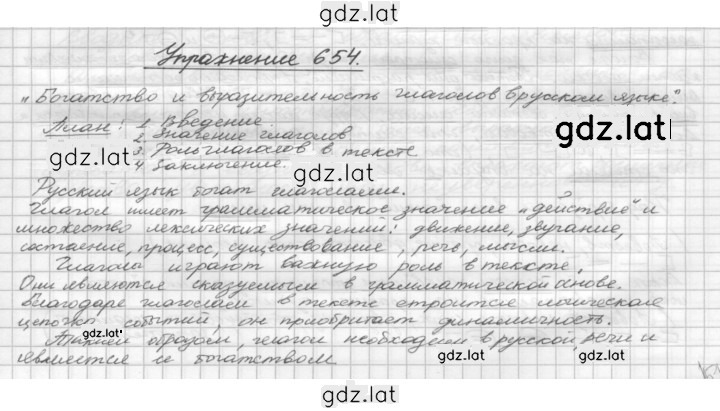 gdz.lat
Упражнение 654.
„Богатство и выразительность глаголов в русском языке".
План: 1 Введение.
2 Значение глаголов
gdz.lat
3. Роль глаголов в тексте
gdz.lat
4 Заключение.
Русский язык богат глаголами.
Глагол имеет грамматическое значение „действие" и
множество лексических значений: движение, звучание,
состояние, процесс, существование, речь, мысли.
Глаголы играют важную роль в тексте.
Они являются сказуемым в грамматической основе.
Благодаря глаголам в тексте строится логическая
цепочка событий, он приобритает динамичность.
gdz.lat
Таким образом, глагол необходим в русской речи и
является её богатством
gdz.lat
gdz.lat